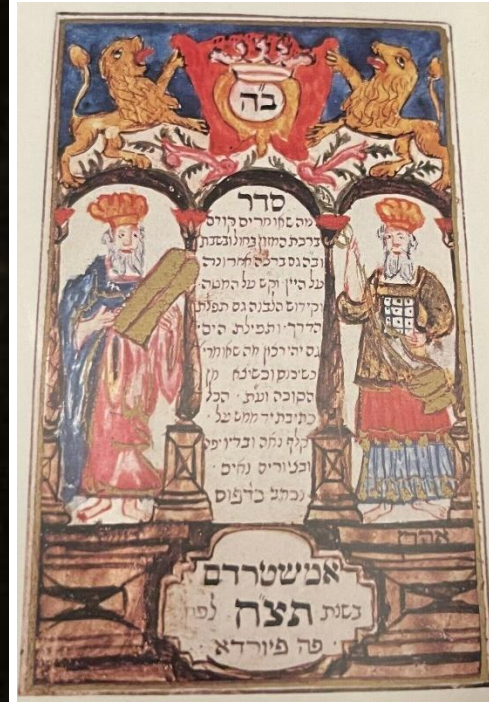 ב"ה
סדר
מה שאומרים קודם
ברכת המזון בחול ובשבת
ובה גם ברכה אחרונה
על היין וקש על המטה
וקידוש הלבנה גם תפלת
הדרך ותפילת הים
גם יהי רצון מה שאומרי'
מן
הסוכה הכל
כתיבת יד ממש על
קלף נאה ובדיו יפה
ובציורים נאים
נכתב כדפוס
אהרן
אמשטרדם
בשנת תצ"ח לפ"ק
פה פיורדא